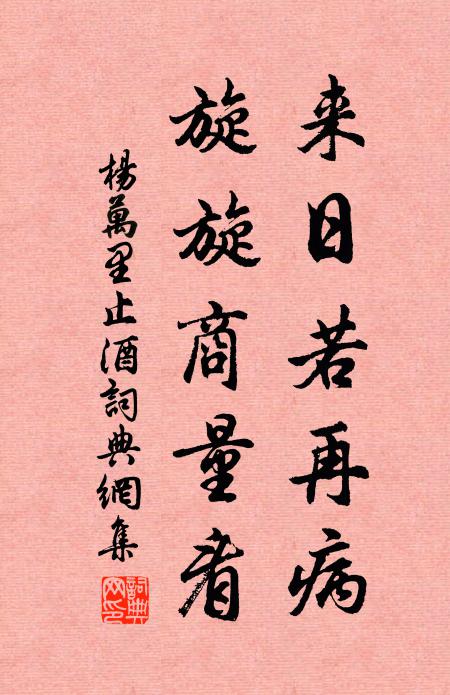 来日若再病
旋旋商量看
楊萬里止酒詞典網集
詞典网印